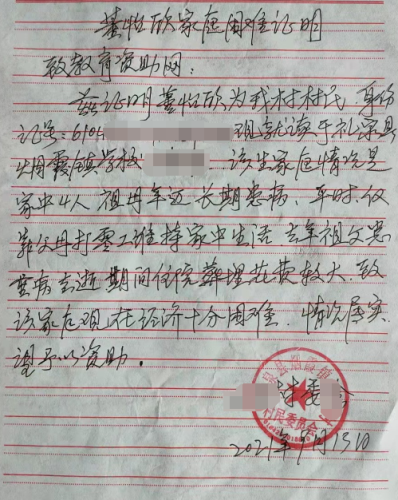 董怡欣家庭困难证明
致教育资助网:
兹证明董怡欣为我村村民,身份
证号:6104 现就读于礼泉县
烟霞镇学校 该生家庭情况是
家中4人 祖母年迈 长期患病、平时仅
靠父母打零工维持家中生活 去年祖父患
重病去逝 期间住院葬埋花费较大、致
该家庭现在经济十分困难. 情况属实
望予以资助.
村委会
村民委员会
2021年7月15日